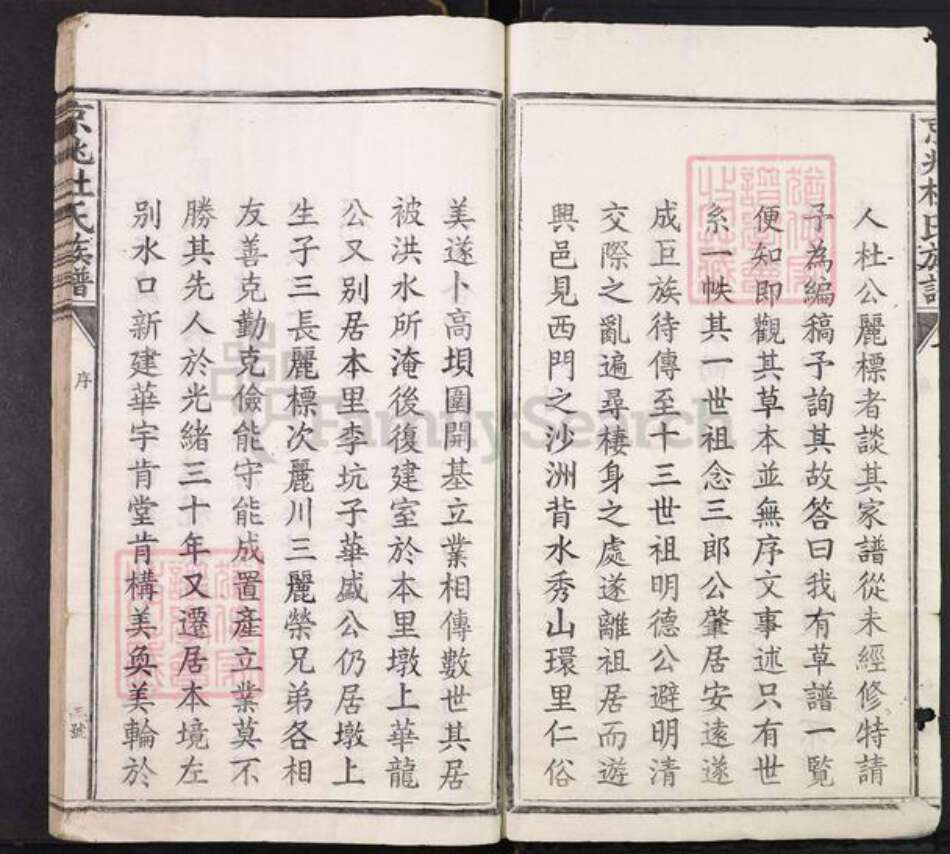 京兆杜氏族譜
人杜公麗標者談其家譜從未經修特請
予為編稿予詢其故答曰我有草譜一覽
便知即觀其草本並無序文事述只有世
系一帙其一世祖念三郎公肇居安遠遂
成巨族待傳至十三世祖明德公避明清
交際之亂遍尋棲身之處遂離祖居而遊
興邑見西門之沙洲背水秀山環里仁俗
美遂卜高坝圍開基立業相傳數世其居
被洪水所淹後復建室於本里墩上華龍
公又別居本里李坑子華盛公仍居墩上
生子三長麗標次麗川三麗榮兄弟各相
友善克勤克儉能守能成置產立業莫不
勝其先人於光緒三十年又遷居本境左
別水口新建華宇肯堂肯構美奐美輪於
京兆杜氏族譜
序
三號
FamilySearch